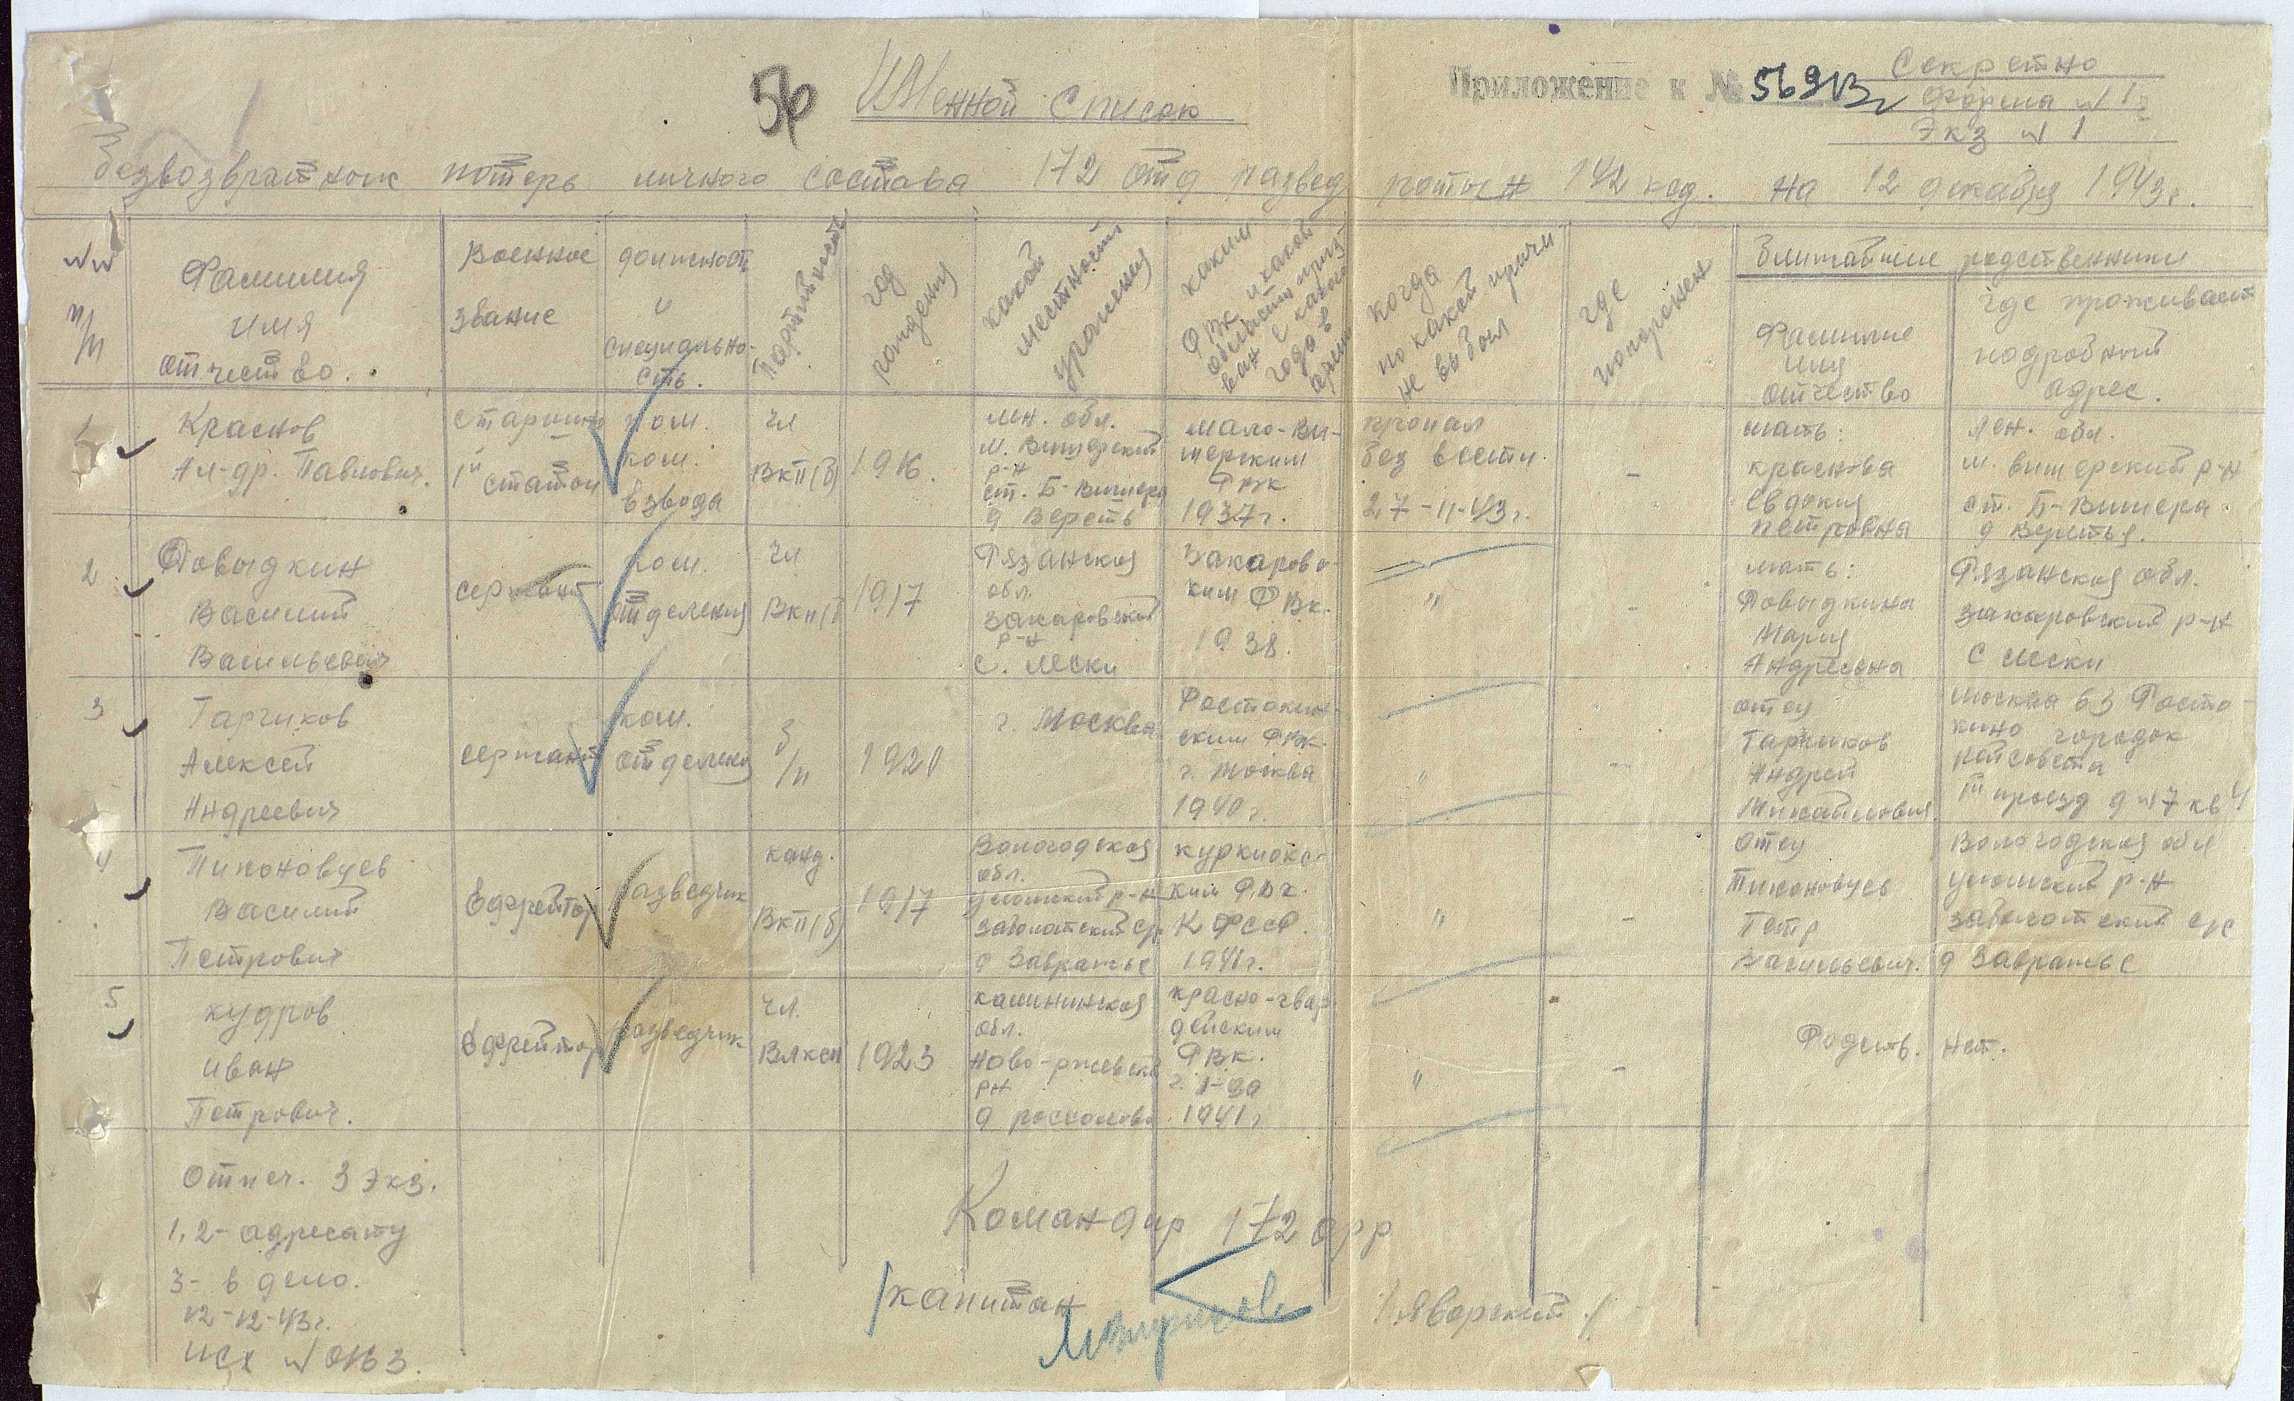 5р
Именной список
Приложение к № 569
Секретно
Форма № 1
Экз № 1
безвозвратных потерь личного состава 172 отд развед роты 142 ксд. на 12 декабря 1943 г.
№№ п/п
Фамилия
имя
отчество.
Военное
звание
должность
и
специально-
сть.
Партийность
год
рождения
какой
местности
уроженец
каким
РВК и какой
области приз-
ван с какого
года в
армии
когда
по какой причи
не выбыл
где
похоронен
Ближайшие родственники
Фамилия
имя
отчество
где проживает
подробный
адрес.
1
Краснов
Ал-др. Павлович.
старшина
1й статьи
пом.
ком.
взвода
чл
ВКП(б)
1916.
лен. обл.
М. Вишерский
р-н
ст. Б-Вишера
д Вереть
мало-Ви-
шерским
РВК
1937 г.
пропал
без вести.
27-11-43 г.
-
мать:
краснова
Евдокия
петровна
лен. обл.
м. вишерский р-н
ст. Б-Вишера.
д Веретья.
2
Повыдкин
Василий
Васильевич
сержант
ком.
отделения
чл
ВКП(б
1917
Рязанская
обл.
Захаровский
р-н
с. пески
Захаров-
ким РВк.
1938.
"
-
мать:
Повыдкина
Мария
Андреевна
Рязанская обл.
Захаровский р-н
с пески
3
Гарчиков
Алексей
Андреевич
сержант
ком.
отделения
б/п
1920
г. Москва
Ростокин-
ским РВК.
г. Москва
1940 г.
"
-
отец
Гарчиков
Андрей
Михайлович
москва 63 Росто-
кино городок
моссовета
проезд д №7 кв 4
4
Тихоновцев
Василий
Петрович
Ефрейтор
разведчик
канд.
ВКП(б)
1917
Вологодская
обл.
р-н
Заболотский с/с
д Завражье
куркиокс-
ким РВК.
К ФССР.
1941 г.
"
-
отец
Тихоновцев
Петр
Васильевич.
Вологодская обл
р-н
заболотский с/с
д Завражье
5
кудров
иван
Петрович.
Ефрейтор
разведчик
чл.
Влксм
1923
калининская
обл.
ново-ржевский
рн
красно-гвар-
дейским
РВк.
г. Л-да
1941 г
"
-
Родств. нет.
Отпеч. 3 экз.
1,2- адресату
3- в дело.
12-12-43 г.
исх №
Командир 172 орр
/капитан
/Яворский/